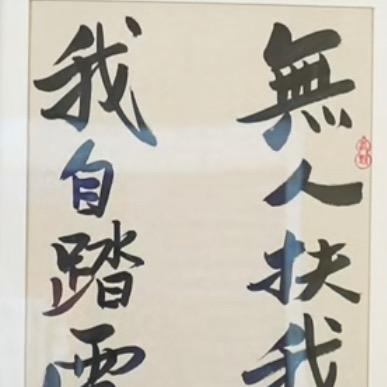 無人扶我
我自踏雪